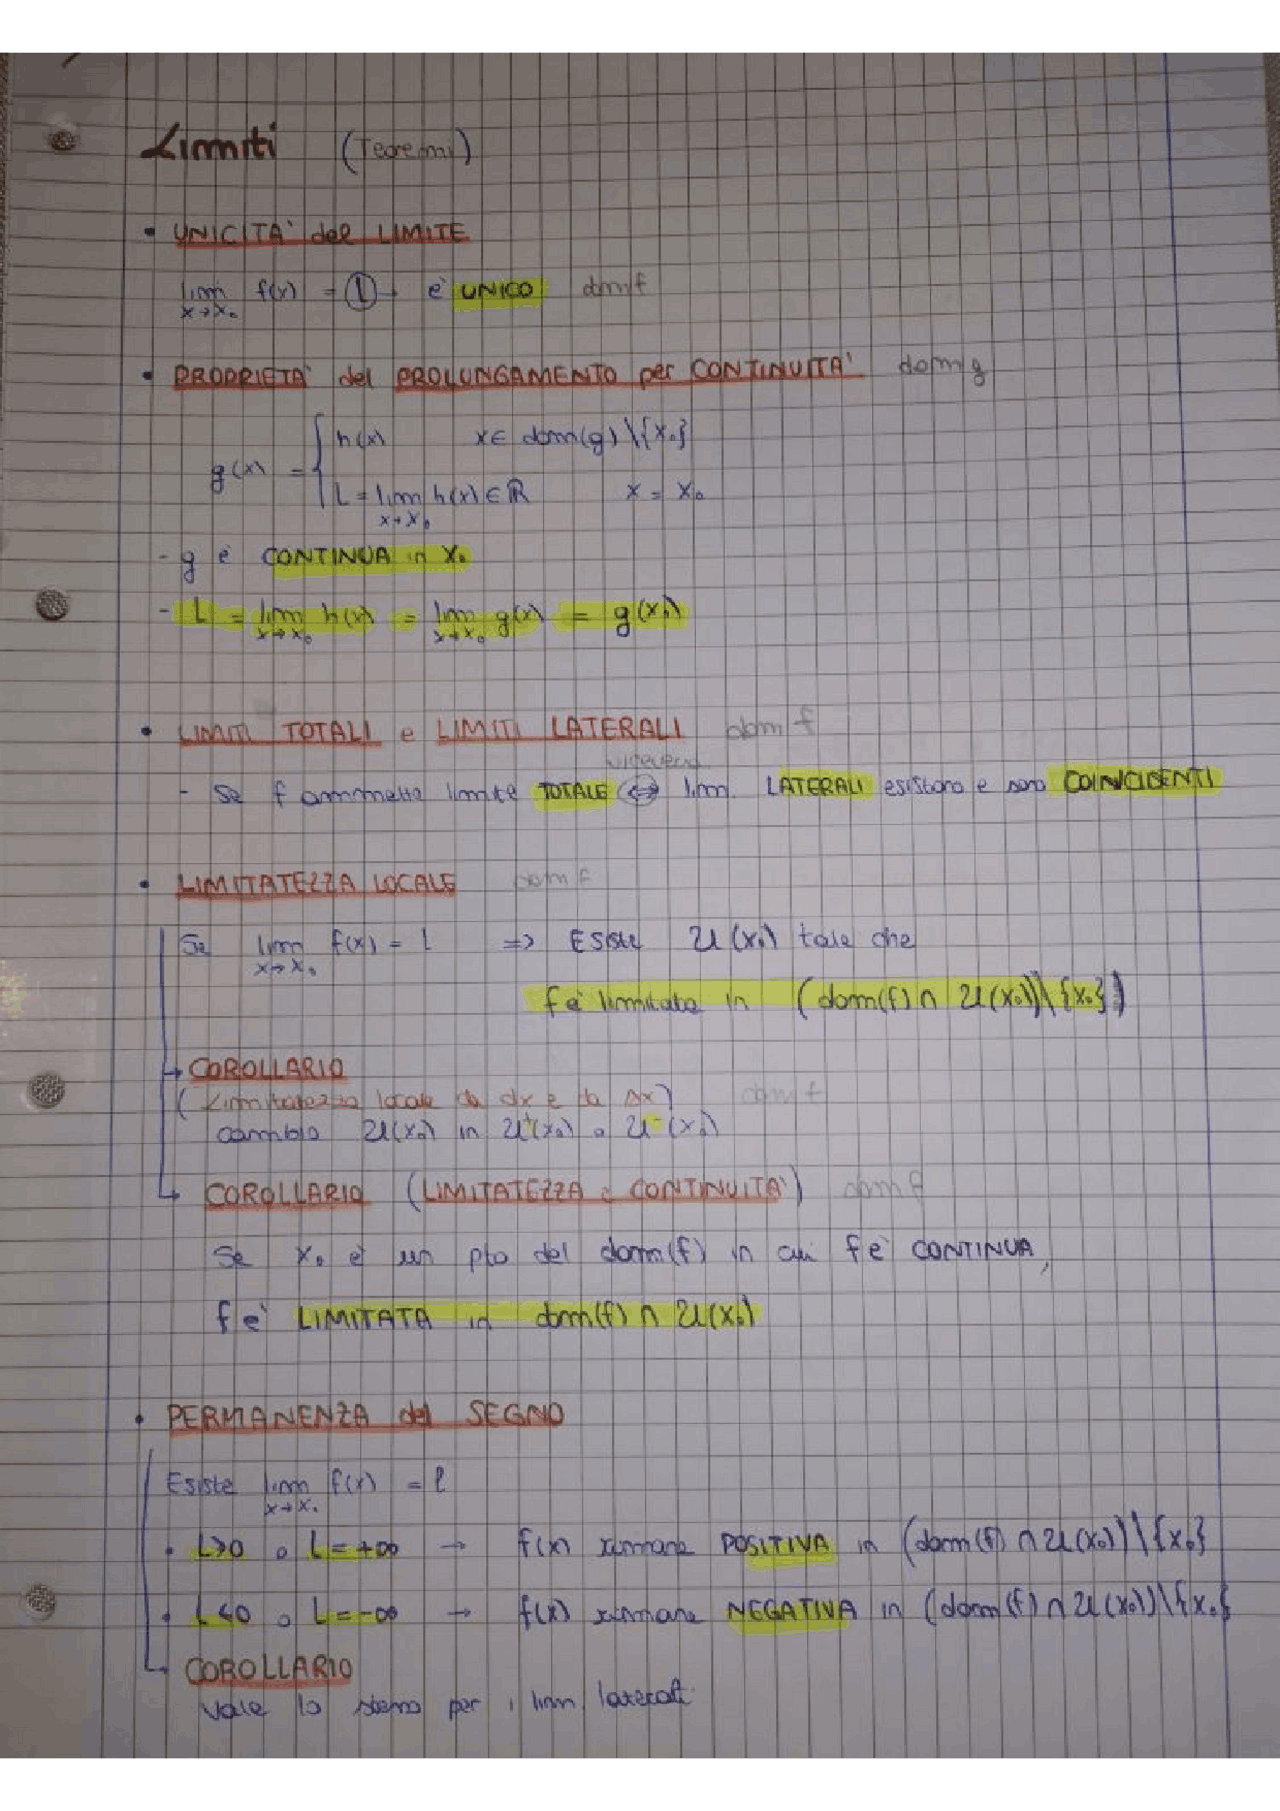 Limiti (Teoremi)
• UNICITA' del LIMITE
lim x→x₀ f(x) = L → è UNICO dom f
• PROPRIETA' del PROLUNGAMENTO per CONTINUITA' dom g
g(x) = { h(x) x ∈ dom(g) \ {x₀}
L = lim x→x₀ h(x) ∈ ℝ x = x₀
- g è CONTINUA in x₀
- L = lim x→x₀ h(x) = lim x→x₀ g(x) = g(x₀)
• LIMITI TOTALI e LIMITI LATERALI dom f
viceversa
- Se f ammette limite TOTALE ⇔ lim. LATERALI esistono e sono COINCIDENTI
• LIMITATEZZA LOCALE dom f
Se lim x→x₀ f(x) = l => Esiste U(x₀) tale che
f è limitata in (dom(f) ∩ U(x₀)) \ {x₀})
→ COROLLARIO
(Limitatezza locale da dx e da sx) dom f
cambio U(x₀) in U⁺(x₀) o U⁻(x₀)
→ COROLLARIO (LIMITATEZZA e CONTINUITA') dom f
Se x₀ è un pto del dom(f) in cui f è CONTINUA,
f è LIMITATA in dom(f) ∩ U(x₀)
• PERMANENZA del SEGNO
Esiste lim x→x₀ f(x) = l
• L>0 o L=+∞ → f(x) rimane POSITIVA in (dom(f) ∩ U(x₀)) \ {x₀}
• L<0 o L=-∞ → f(x) rimane NEGATIVA in (dom(f) ∩ U(x₀)) \ {x₀}
→ COROLLARIO
Vale lo stesso per i lim laterali